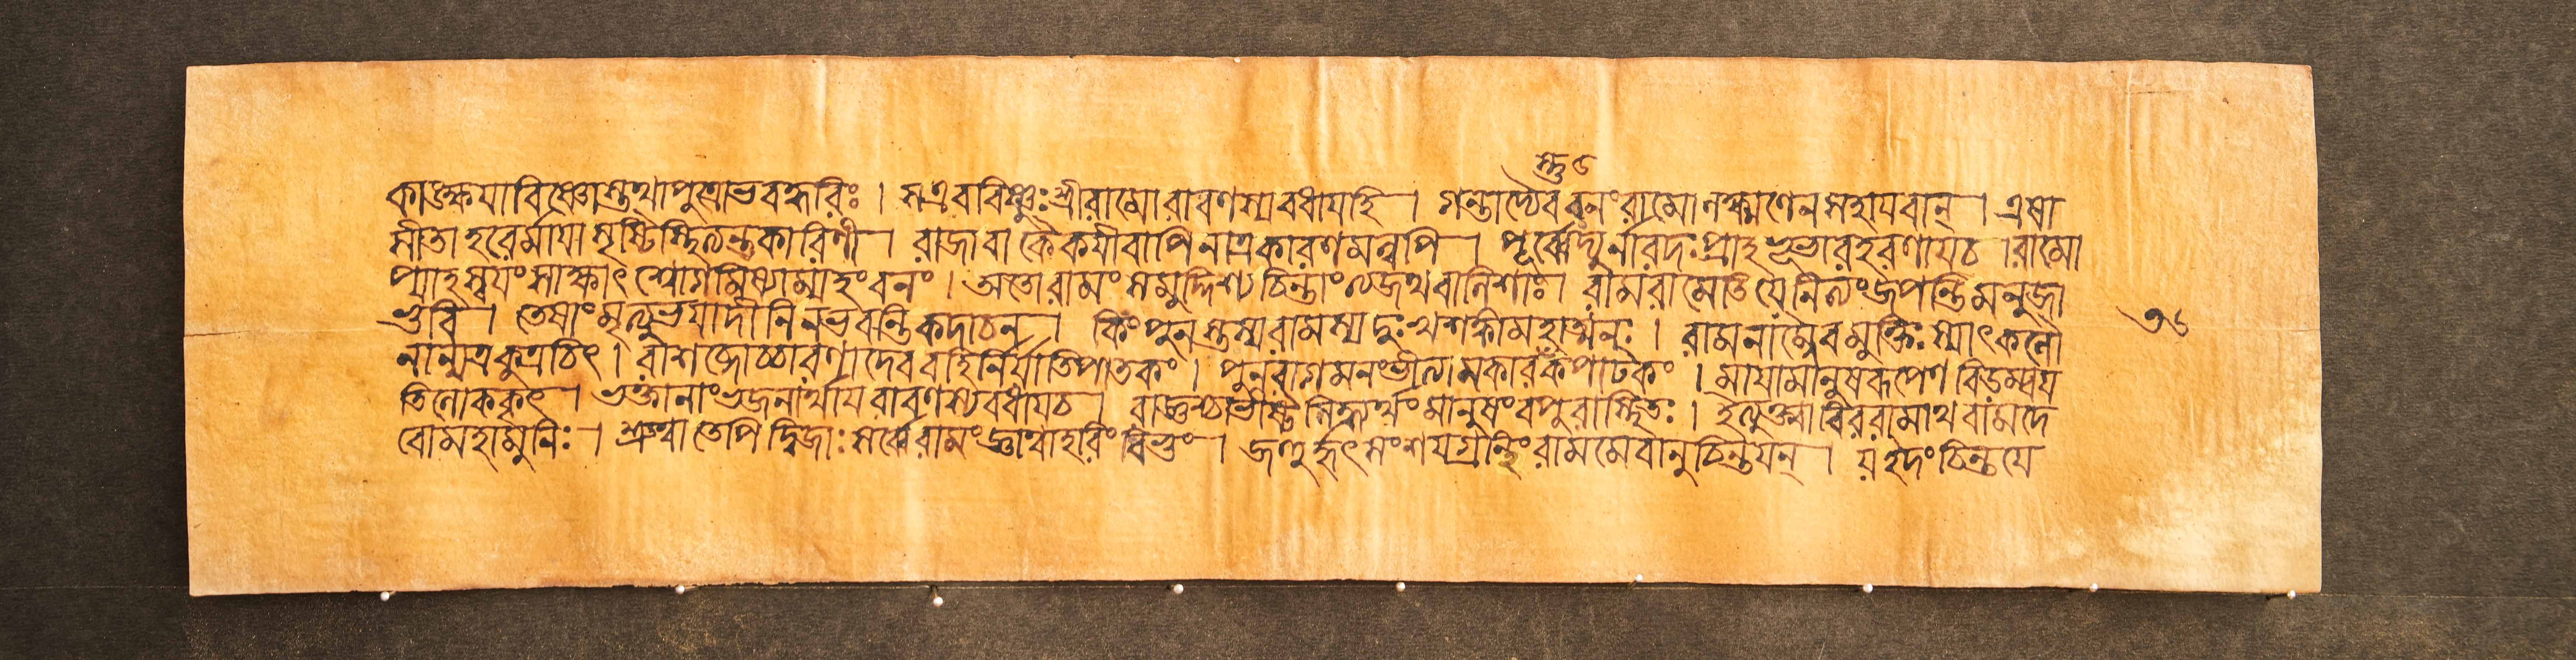 কাঙ্ক্ষযাবিষ্ণোস্তথাপুত্রোভবদ্ধরিঃ । সএববিষ্ণুঃশ্রীরামোরাবণস্যবধাযহি । গন্তাদ্যৈববনংরামোলক্ষ্মণেনসহাযবান্ । এষা
সীতাহরের্মাযাসৃষ্টিস্থিত্যন্তকারিণী । রাজাবাকৈকযীবাপিনাত্রকারণমন্বপি । পূর্ব্বেদ্যুর্নারদঃপ্রাহভূভারহরণাযচ ।রামো
প্যাহস্বযংসাক্ষাৎশ্বোগমিষ্যাম্যহংবনং । অতোরামংসমুদ্দিশ্যচিন্তাংত্যজথবালিশাঃ। রামরামেতিযেনিত্যংজপন্তিমনুজা
ভুবি । তেষাংমৃত্যুভযাদীনিনভবন্তিকদাচন । কিংপুনস্তস্যরামস্যদুঃখশঙ্কামহাত্মনঃ । রামনাম্নৈবমুক্তিঃস্যাৎকলৌ
নান্যত্রকুত্রচিৎ । রাশব্দোচ্চারণাদেববহির্নির্যাতিপাতকং । পুনরাগমনংভীত্যামকারঃকপাটকং । মাযামানুষরূপেণবিডম্বয
তিলোককৃৎ । ভক্তানাংভজনার্থাযরাবণস্যবধাযচ । রাজ্ঞশ্চাভীষ্টসিদ্ধ্যর্থংমানুষংবপুরাস্থিতঃ । ইত্যুক্ত্বাবিররামাথবামদে
বোমহামুনিঃ । শ্রুত্বাতেপিদ্বিজাঃসর্ব্বেরামংজ্ঞাত্বাহরিংবিভুং । জহুর্হৃৎসংশযগ্রন্থিংরামমেবানুচিন্তযন্ । যইদংচিন্তযে